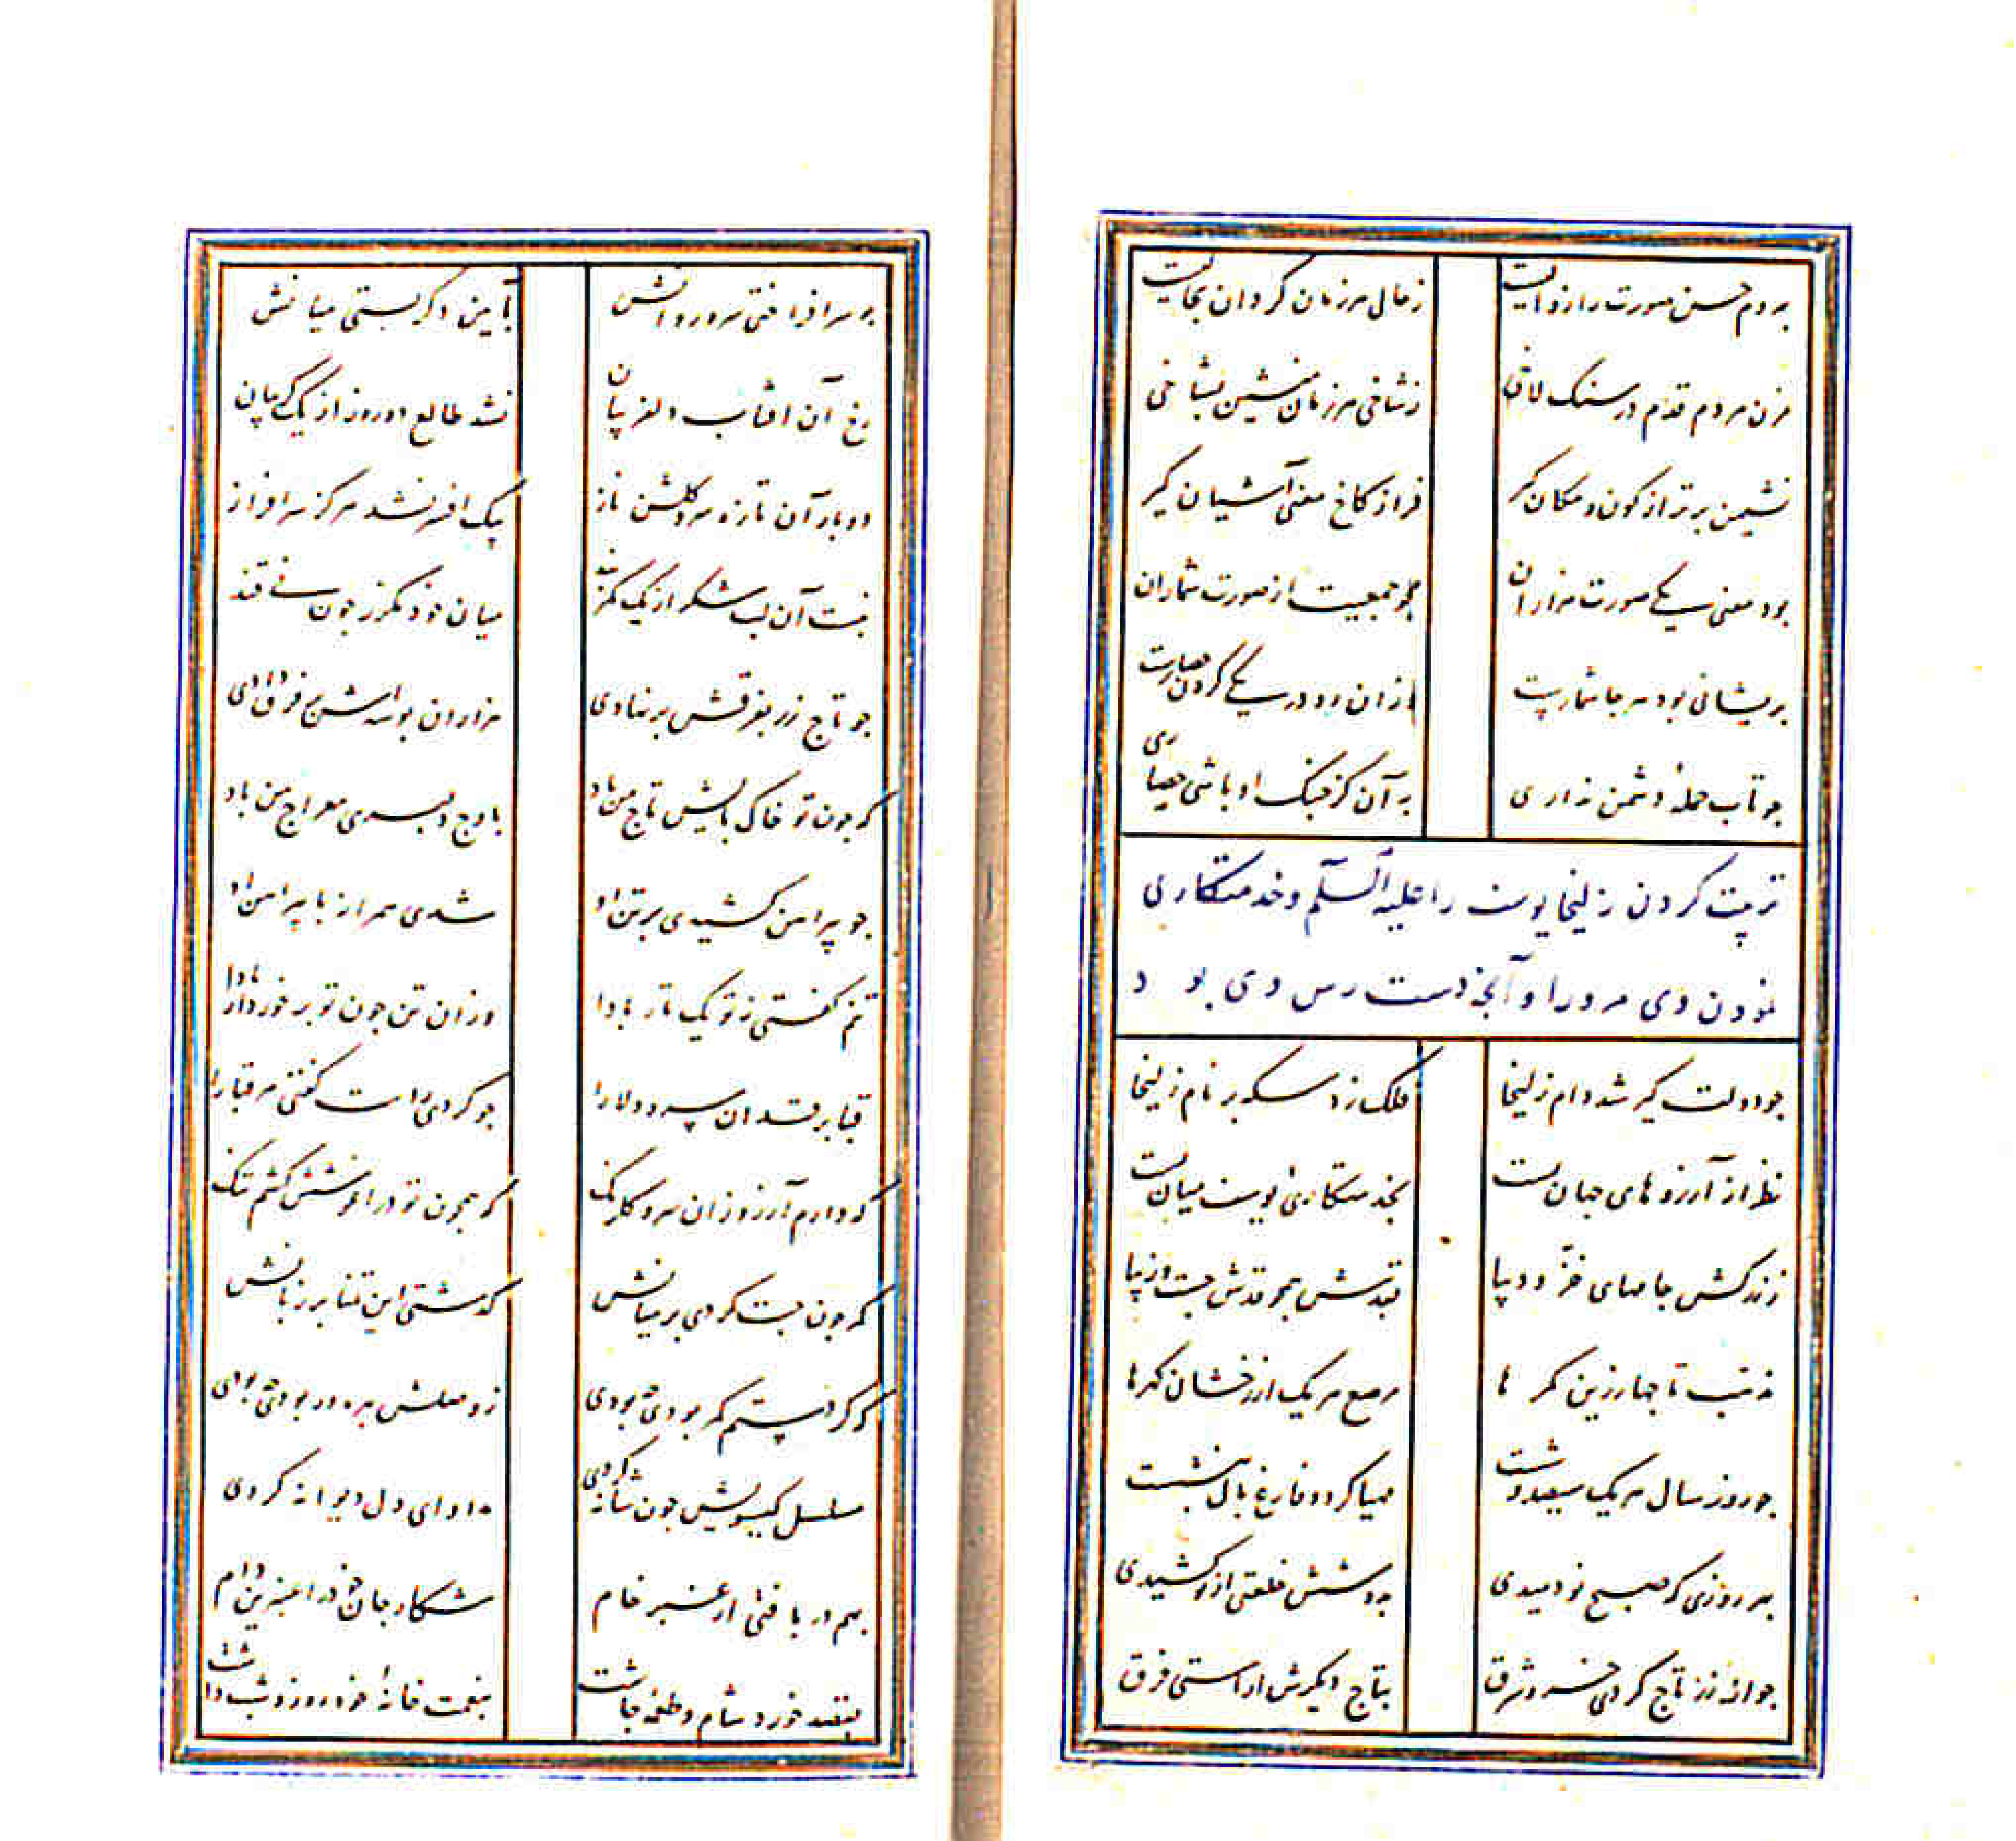 بهر دم حسن صورت را زوالیست ز حالی هر زمان گردان بحالیست
مزن هر دم قدم در سنک لاخی ز شاخی هر زمان منشین بشاخی
نشیمن برتر از کون و مکان گیر فراز کاخ معنی آشیان گیر
بود معنی یکی صورت هزاران مجو جمعیت از صورت شماران
پریشانی بود هر جا شمارست ازان رو در یکی کردن حصارست
چو تاب حملهٔ دشمن نداری به آن کز جنک او باشی حصاری
تربیت کردن زلیخا یوسف را علیه السلم و خدمتکاری
نمودن وی مر ورا و آنچه دست رس وی بود
چو دولت گیر شد دام زلیخا فلک زد سکه بر نام زلیخا
نظر از آرزوهای جهان بست بخدمتکاری یوسف میان بست
ز زرکش جامهای خز و دیپا بقدش همچو قدش چست و زیپا
مذهب تاجها زرین کمرها مرصع هر یک از رخشان گهرها
چو روز سال هر یک سیصد و شصت مهیا کرد و فارغ بال بنشست
بهر روزی که صبح نو دمیدی بدوشش خلعتی از نو کشیدی
چو از زر تاج کردی خسرو شرق بتاج دیگرش آراستی فرق
چو سر افراختی سرو روانش بآیین دگر بستی میانش
رخ آن افتاب دلفریپان نشد طالع دو روز از یک گریپان
دو بار آن تازه سرو گلشن ناز بیک افسر نشد هرگز سرافراز
نبست آن لب شکر از یک کمربند میان خود دگر زر چون نی قند
چو تاج زر بفرقش برنهادی هزاران بوسه اش بر فرق دادی
که چون تو خاک پایش تاج من باد باوج دلبری معراج من باد
چو پیراهن کشیدی بر تن او شدی همراز با پیراهن او
تنم گفتی ز تو یک تار بادا وزان تن چون تو برخوردار بادا
قبا بر قد ان سرو دلارا چو کردی راست گفتی مر قبارا
که دارم آرزو زان سرو گلرنک که همچون تو در اغوشش کشم تنک
کمر چون چست کردی بر میانش گذشتی این تمنا بر زبانش
که گر دستم کمر بودی چه بودی ز وصلش بهره ور بودی چه بودی
مسلسل گیسویش چون شانه کردی مداوای دل دیوانه کردی
بهم در بافتی از عنبر خام شکار جان خود را عنبرین دام
بنعمت خانهٔ خود روز و شب داشت